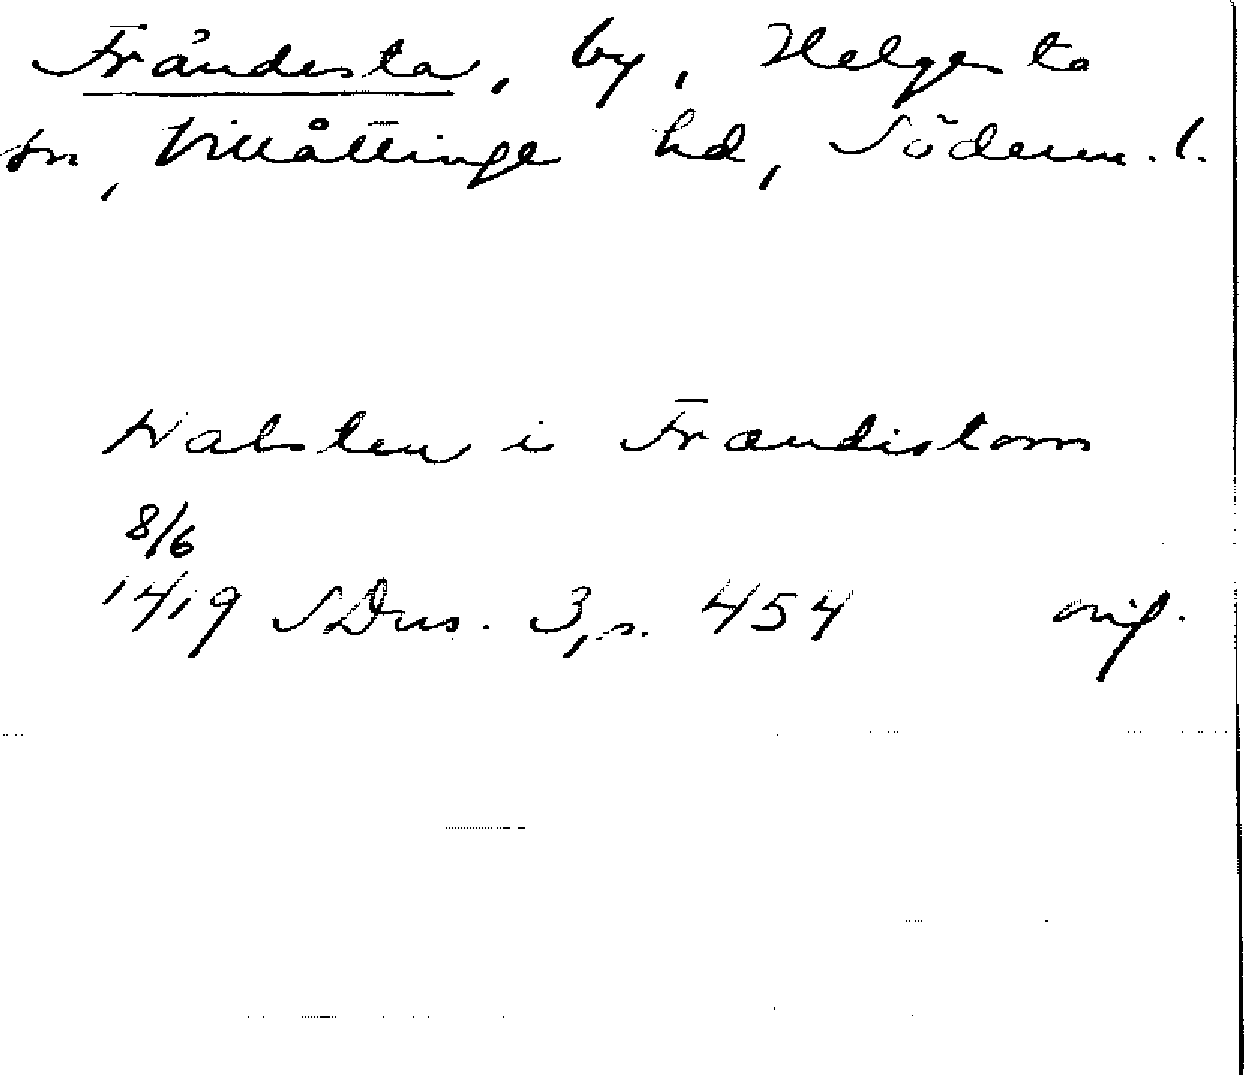 Frändesta, by, Helgesta
sn, Villåttinge hd, Söderm. l.
Walsten i Frændistom
8/6
1419 SDns. 3, s. 454 orig.